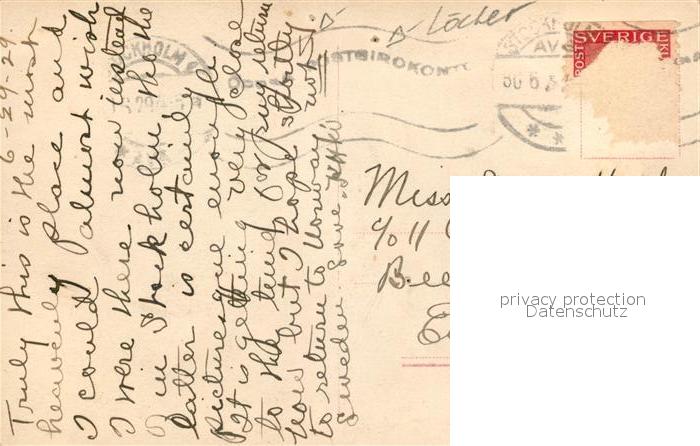 6-29-29.
Truly this is the most
heavenly place and
I could almost wish
I were there now instead
in Stockholm tho the
latter is certainly
picturesque enough
It is getting very close
to the time for my return
now but I hope shortly
to return to Norway not
Sweden. Love.
Löcher
STOCKHOLM
POSTGIROKONTO
STOCKHOLM
AVG
30 6
SVERIGE
POST
Miss
℅ H
privacy protection
Datenschutz